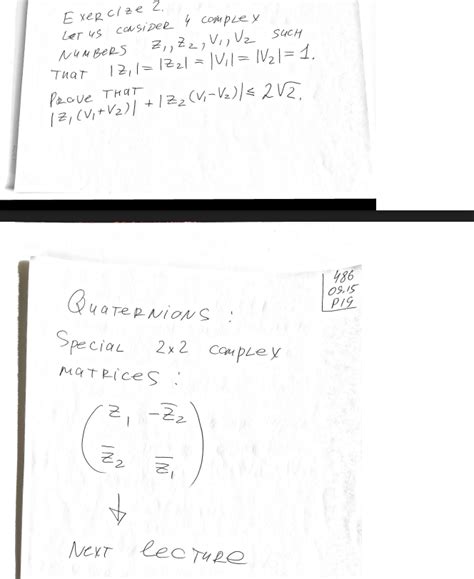 Exercize 2.
Let us consider 4 complex
numbers z₁, z₂, v₁, v₂ such
that |z₁| = |z₂| = |v₁| = |v₂| = 1.
Prove that
|z₁(v₁+v₂)| + |z₂(v₁-v₂)| ≤ 2√2.
486
09.15
P19
Quaternions :
Special 2x2 complex
matrices :
z₁ -z̅₂
z̅₂ z̅₁
↓
Next lecture